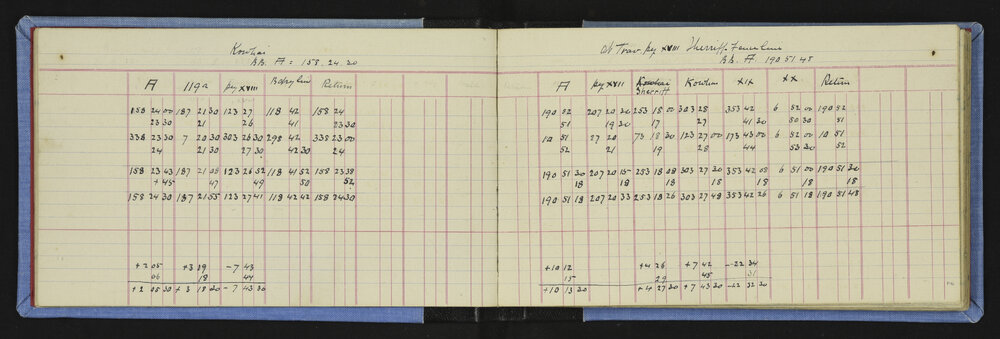 Kowhai
BB. A = 158. 24. 30
A 119a peg XVIII Bdry line Return
158 24 00 187 21 30 123 27 118 42 158 24
23 30 21 26 41 23 30
338 23 30 7 20 30 303 26 30 298 42 338 23 00
24 21 30 27 30 42 30 24
158 23 43 187 21 06 123 26 52 118 41 52 158 23 38
+ 45 47 49 50 52
158 24 30 187 21 55 123 27 41 118 42 42 158 24 30
+2 05 +3 19 -7 43
06 18 44
+2 05 30 +3 18 30 -7 43 30
At Trav. peg XVIII Sherriff
BB. A. 190 51 48
A peg XVII Kowhai Kowhai XIX XX Return
Sherriff
190 52 207 20 30 253 18 00 303 28 353 42 6 52 00 190 52
51 19 30 17 27 41 30 50 30 51
10 51 27 20 73 18 30 123 27 00 173 43 00 6 52 10 51
52 21 19 28 44 53 30 52
190 51 30 207 20 15 253 18 08 303 27 30 353 42 08 6 51 00 190 51 30
18 18 18 18 18 18 18
190 51 18 207 20 33 253 18 26 303 27 48 353 42 26 6 51 18 190 51 48
+10 12 +4 26 +7 42 -22 34
15 29 45 31
+10 13 30 +4 27 30 +7 43 30 -22 32 30